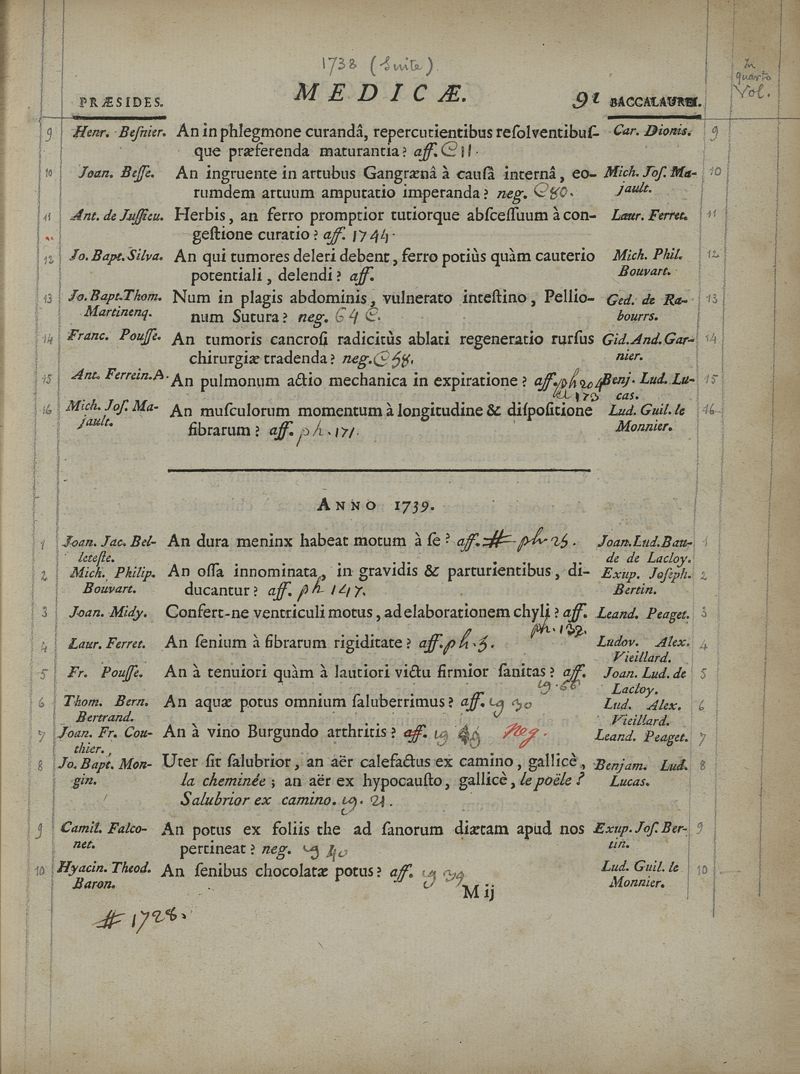 1738 (Suite)
In quarto Vol.
PRÆSIDES. MEDICÆ. 91 BACCALAUREI.
9 Henr. Besnier. An in phlegmone curandâ, repercutientibus resolventibus- Car. Dionis. 9
que præferenda maturantia? aff.
10 Joan. Besse. An ingruente in artubus Gangrænâ à causâ internâ, eo- Mich. Jos. Ma- 10
rumdem artuum amputatio imperanda? neg. jault.
11 Ant. de Jussieu. Herbis, an ferro promptior tutiorque abscessuum à con- Laur. Ferret. 11
gestione curatio? aff. 1744.
12 Jo. Bapt. Silva. An qui tumores deleri debent, ferro potiùs quàm cauterio Mich. Phil. 12
potentiali, delendi? aff. Bouvart.
13 Jo. Bapt. Thom. Num in plagis abdominis, vulnerato intestino, Pellio- Ged. de Ra- 13
Martinenq. num Sutura? neg. bourrs.
14 Franc. Pousse. An tumoris cancrosi radicitùs ablati regeneratio rursus Gid. And. Gar- 14
chirurgiæ tradenda? neg. nier.
15 Ant. Ferrein. A. An pulmonum actio mechanica in expiratione? aff. Benj. Lud. Lu- 15
cas.
16 Mich. Jos. Ma- An musculorum momentum à longitudine & dispositione Lud. Guil. le 16
jault. fibrarum? aff. ph. 171. Monnier.
ANNO 1739.
1 Joan. Jac. Bel- An dura meninx habeat motum à se? aff. # ph 25. Joan. Lud. Bau- 1
leteste. de de Lacloy.
2 Mich. Philip. An ossa innominata, in gravidis & parturientibus, di- Exup. Joseph. 2
Bouvart. ducantur? aff. ph 147. Bertin.
3 Joan. Midy. Confert-ne ventriculi motus, ad elaborationem chyli? aff. Leand. Peaget. 3
ph. 132.
4 Laur. Ferret. An senium à fibrarum rigiditate? aff. ph. 3. Ludov. Alex. 4
Vieillard.
5 Fr. Pousse. An à tenuiori quàm à lautiori victu firmior sanitas? aff. Joan. Lud. de 5
Lacloy.
6 Thom. Bern. An aquæ potus omnium saluberrimus? aff. Lud. Alex. 6
Bertrand. Vieillard.
7 Joan. Fr. Cou- An à vino Burgundo arthritis? aff. Neg. Leand. Peaget. 7
thier.
8 Jo. Bapt. Mon- Uter sit salubrior, an aër calefactus ex camino, gallicè, Benjam. Lud. 8
gin. la cheminée; an aër ex hypocausto, gallicè, le poële? Lucas.
Salubrior ex camino.
9 Camil. Falco- An potus ex foliis the ad sanorum diætam apud nos Exup. Jos. Ber- 9
net. pertineat? neg. tin.
10 Hyacin. Theod. An senibus chocolatæ potus? aff. Lud. Guil. le 10
Baron. Monnier.
M ij
# 1728.